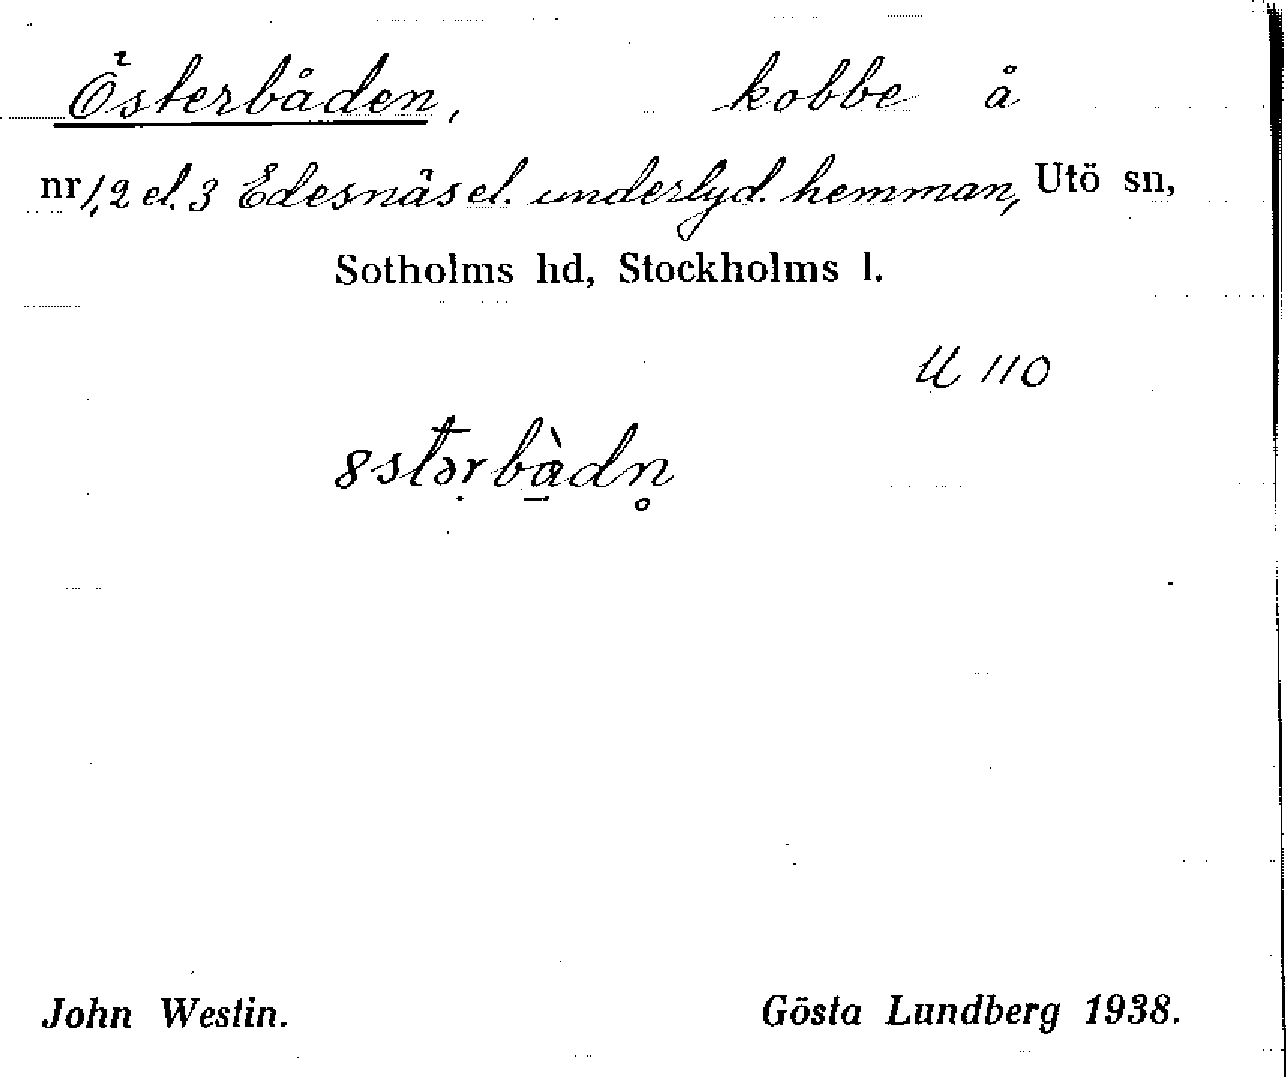 Österbåden, kobbe å
nr 1, 2 el. 3 Edesnäs el. underlyd. hemman, Utö sn,
Sotholms hd, Stockholms l.
U 110
8stərbàdn̥
John Westin. Gösta Lundberg 1938.